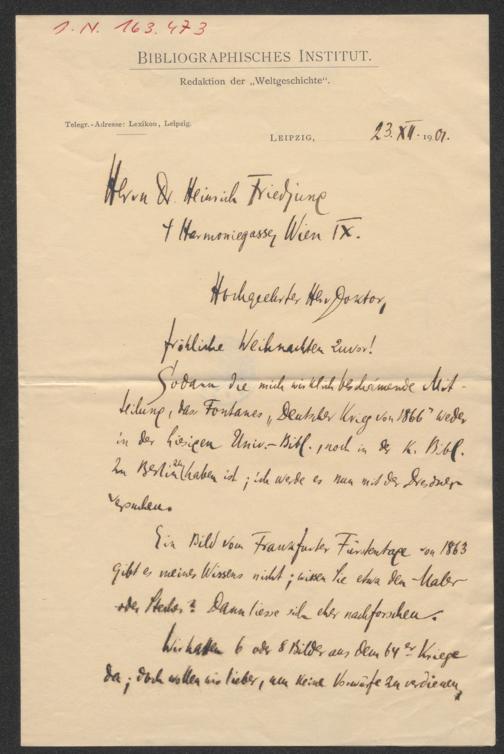 J. N. 163.473
BIBLIOGRAPHISCHES INSTITUT.
Redaktion der „Weltgeschichte“.
Telegr.-Adresse: Lexikon, Leipzig.
LEIPZIG, 23. XII. 1901.
Herrn Dr. Heinrich Friedjung
4 Harmoniegasse, Wien IX.
Hochgeehrter Herr Doktor,
fröhliche Weihnachten zuvor!
Sodann die mich wirklich beschämende Mit-
teilung, dass Fontanes „Deutscher Krieg von 1866“ weder
in der hiesigen Univ.-Bibl., noch in der K. Bibl.
zu Berlin zu haben ist; ich werde es nun mit der Dresdner
versuchen.
Ein Bild vom Frankfurter Fürstentage von 1863
gibt es meines Wissens nicht; wissen Sie etwa den Maler
oder Stecher? Dann liesse sich eher nachforschen.
Wir hatten 6 oder 8 Bilder aus dem 64er Kriege
da; doch wollen wir lieber, um keine Vorwürfe zu verdienen,